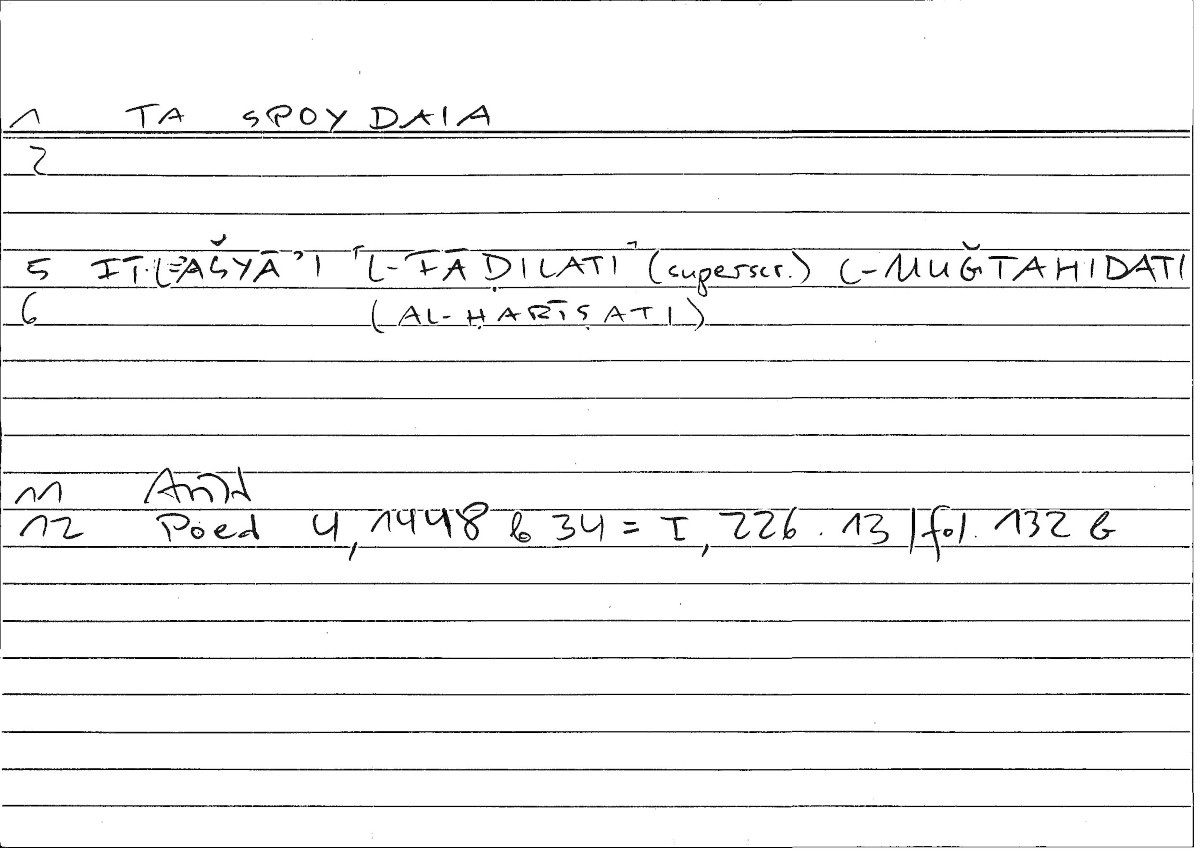 1 TA SPOYDAIA
2
5 FĪ L-AŠYĀʾI ⸢L-FĀḌILATI⸣ (superscr.) L-MUǦTAHIDATI
6 (AL-ḤARĪṢATI)
11 Arist
12 Poed 4, 1448 b 34 = I, 226.13 / fol. 132 b